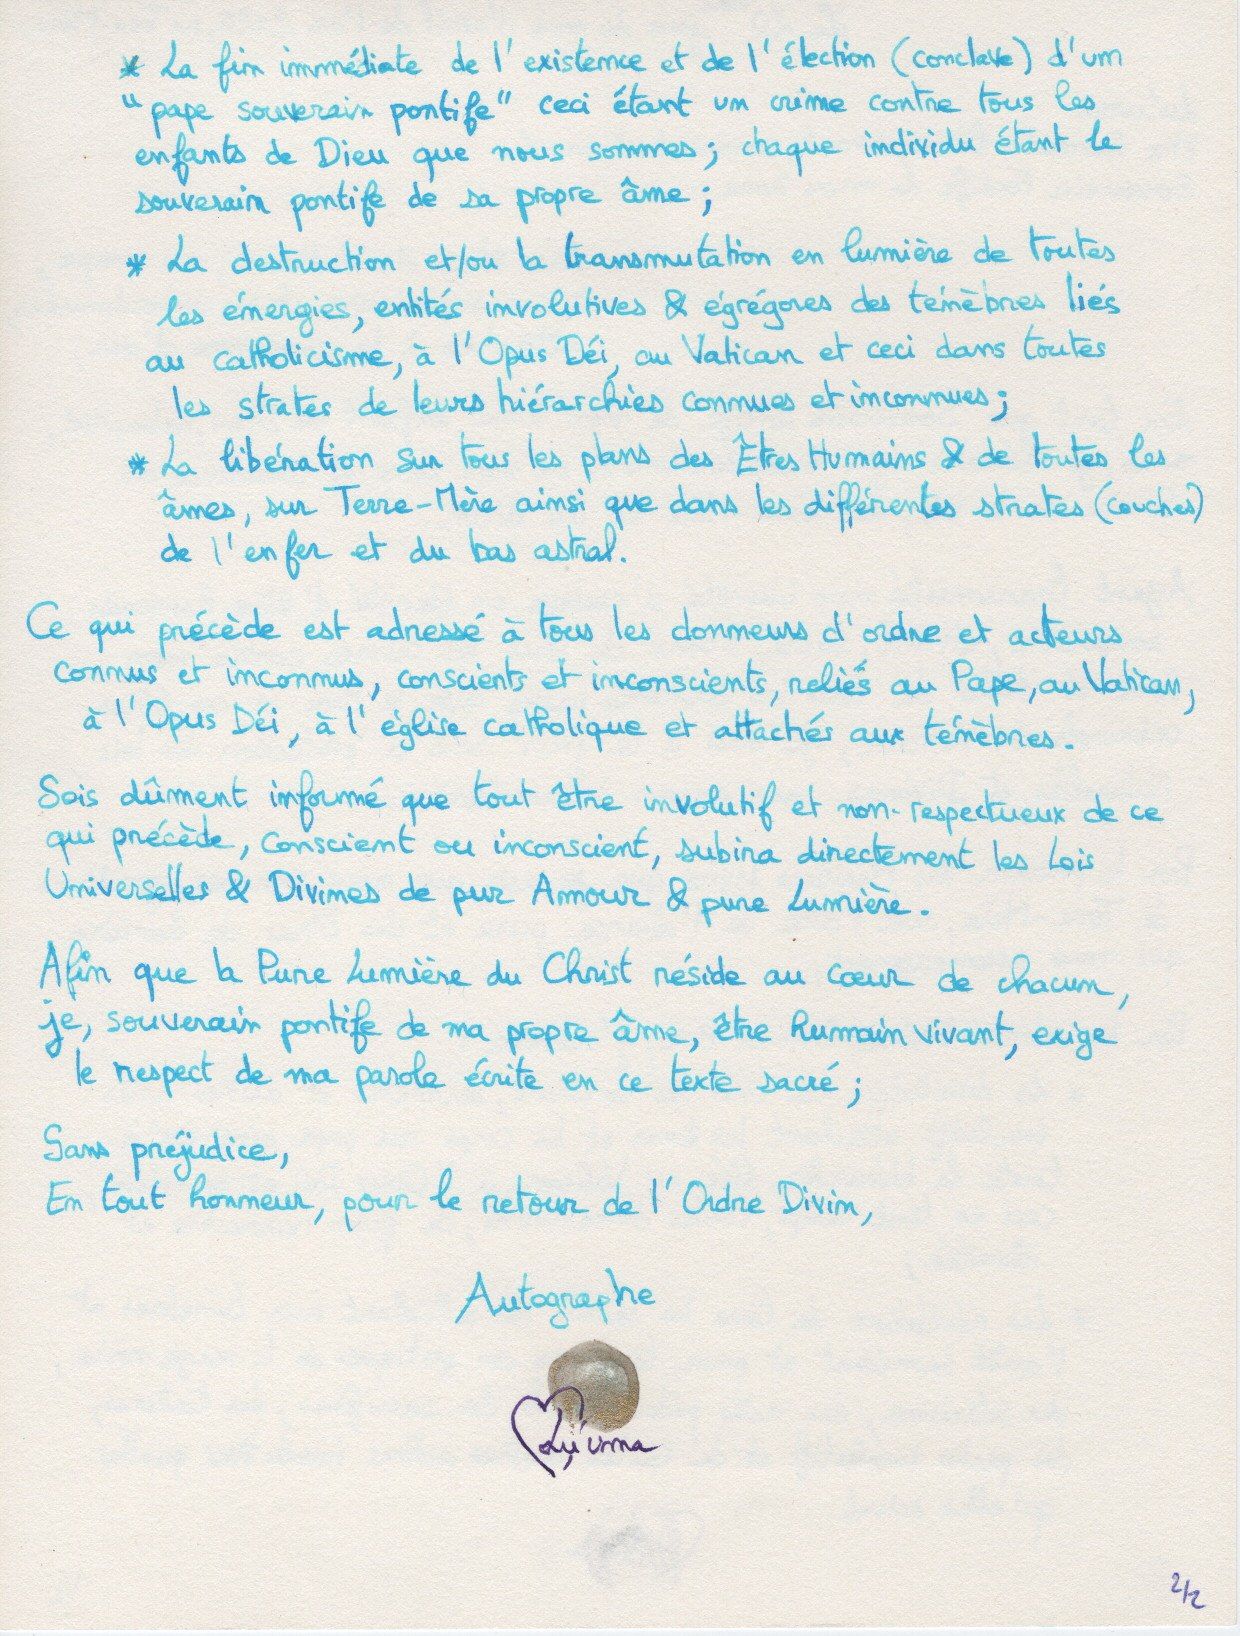 * La fin immédiate de l'existence et de l'élection (conclave) d'un
"pape souverain pontife" ceci étant un crime contre tous les
enfants de Dieu que nous sommes; chaque individu étant le
souverain pontife de sa propre âme;
* La destruction et/ou la transmutation en lumière de toutes
les énergies, entités involutives & égrégores des ténèbres liés
au catholicisme, à l'Opus Déi, au Vatican et ceci dans toutes
les strates de leurs hiérarchies connues et inconnues;
* La libération sur tous les plans des Êtres Humains & de toutes les
âmes, sur Terre-Mère ainsi que dans les différentes strates (couches)
de l'enfer et du bas astral.
Ce qui précède est adressé à tous les donneurs d'ordre et acteurs
connus et inconnus, conscients et inconscients, reliés au Pape, au Vatican,
à l'Opus Déi, à l'église catholique et attachés aux ténèbres.
Sois dûment informé que tout être involutif et non-respectueux de ce
qui précède, conscient ou inconscient, subira directement les Lois
Universelles & Divines de pur Amour & pure Lumière.
Afin que la Pure Lumière du Christ réside au cœur de chacun,
je, souverain pontife de ma propre âme, être humain vivant, exige
le respect de ma parole écrite en ce texte sacré;
Sans préjudice,
En tout honneur, pour le retour de l'Ordre Divin,
Autographe
2/2